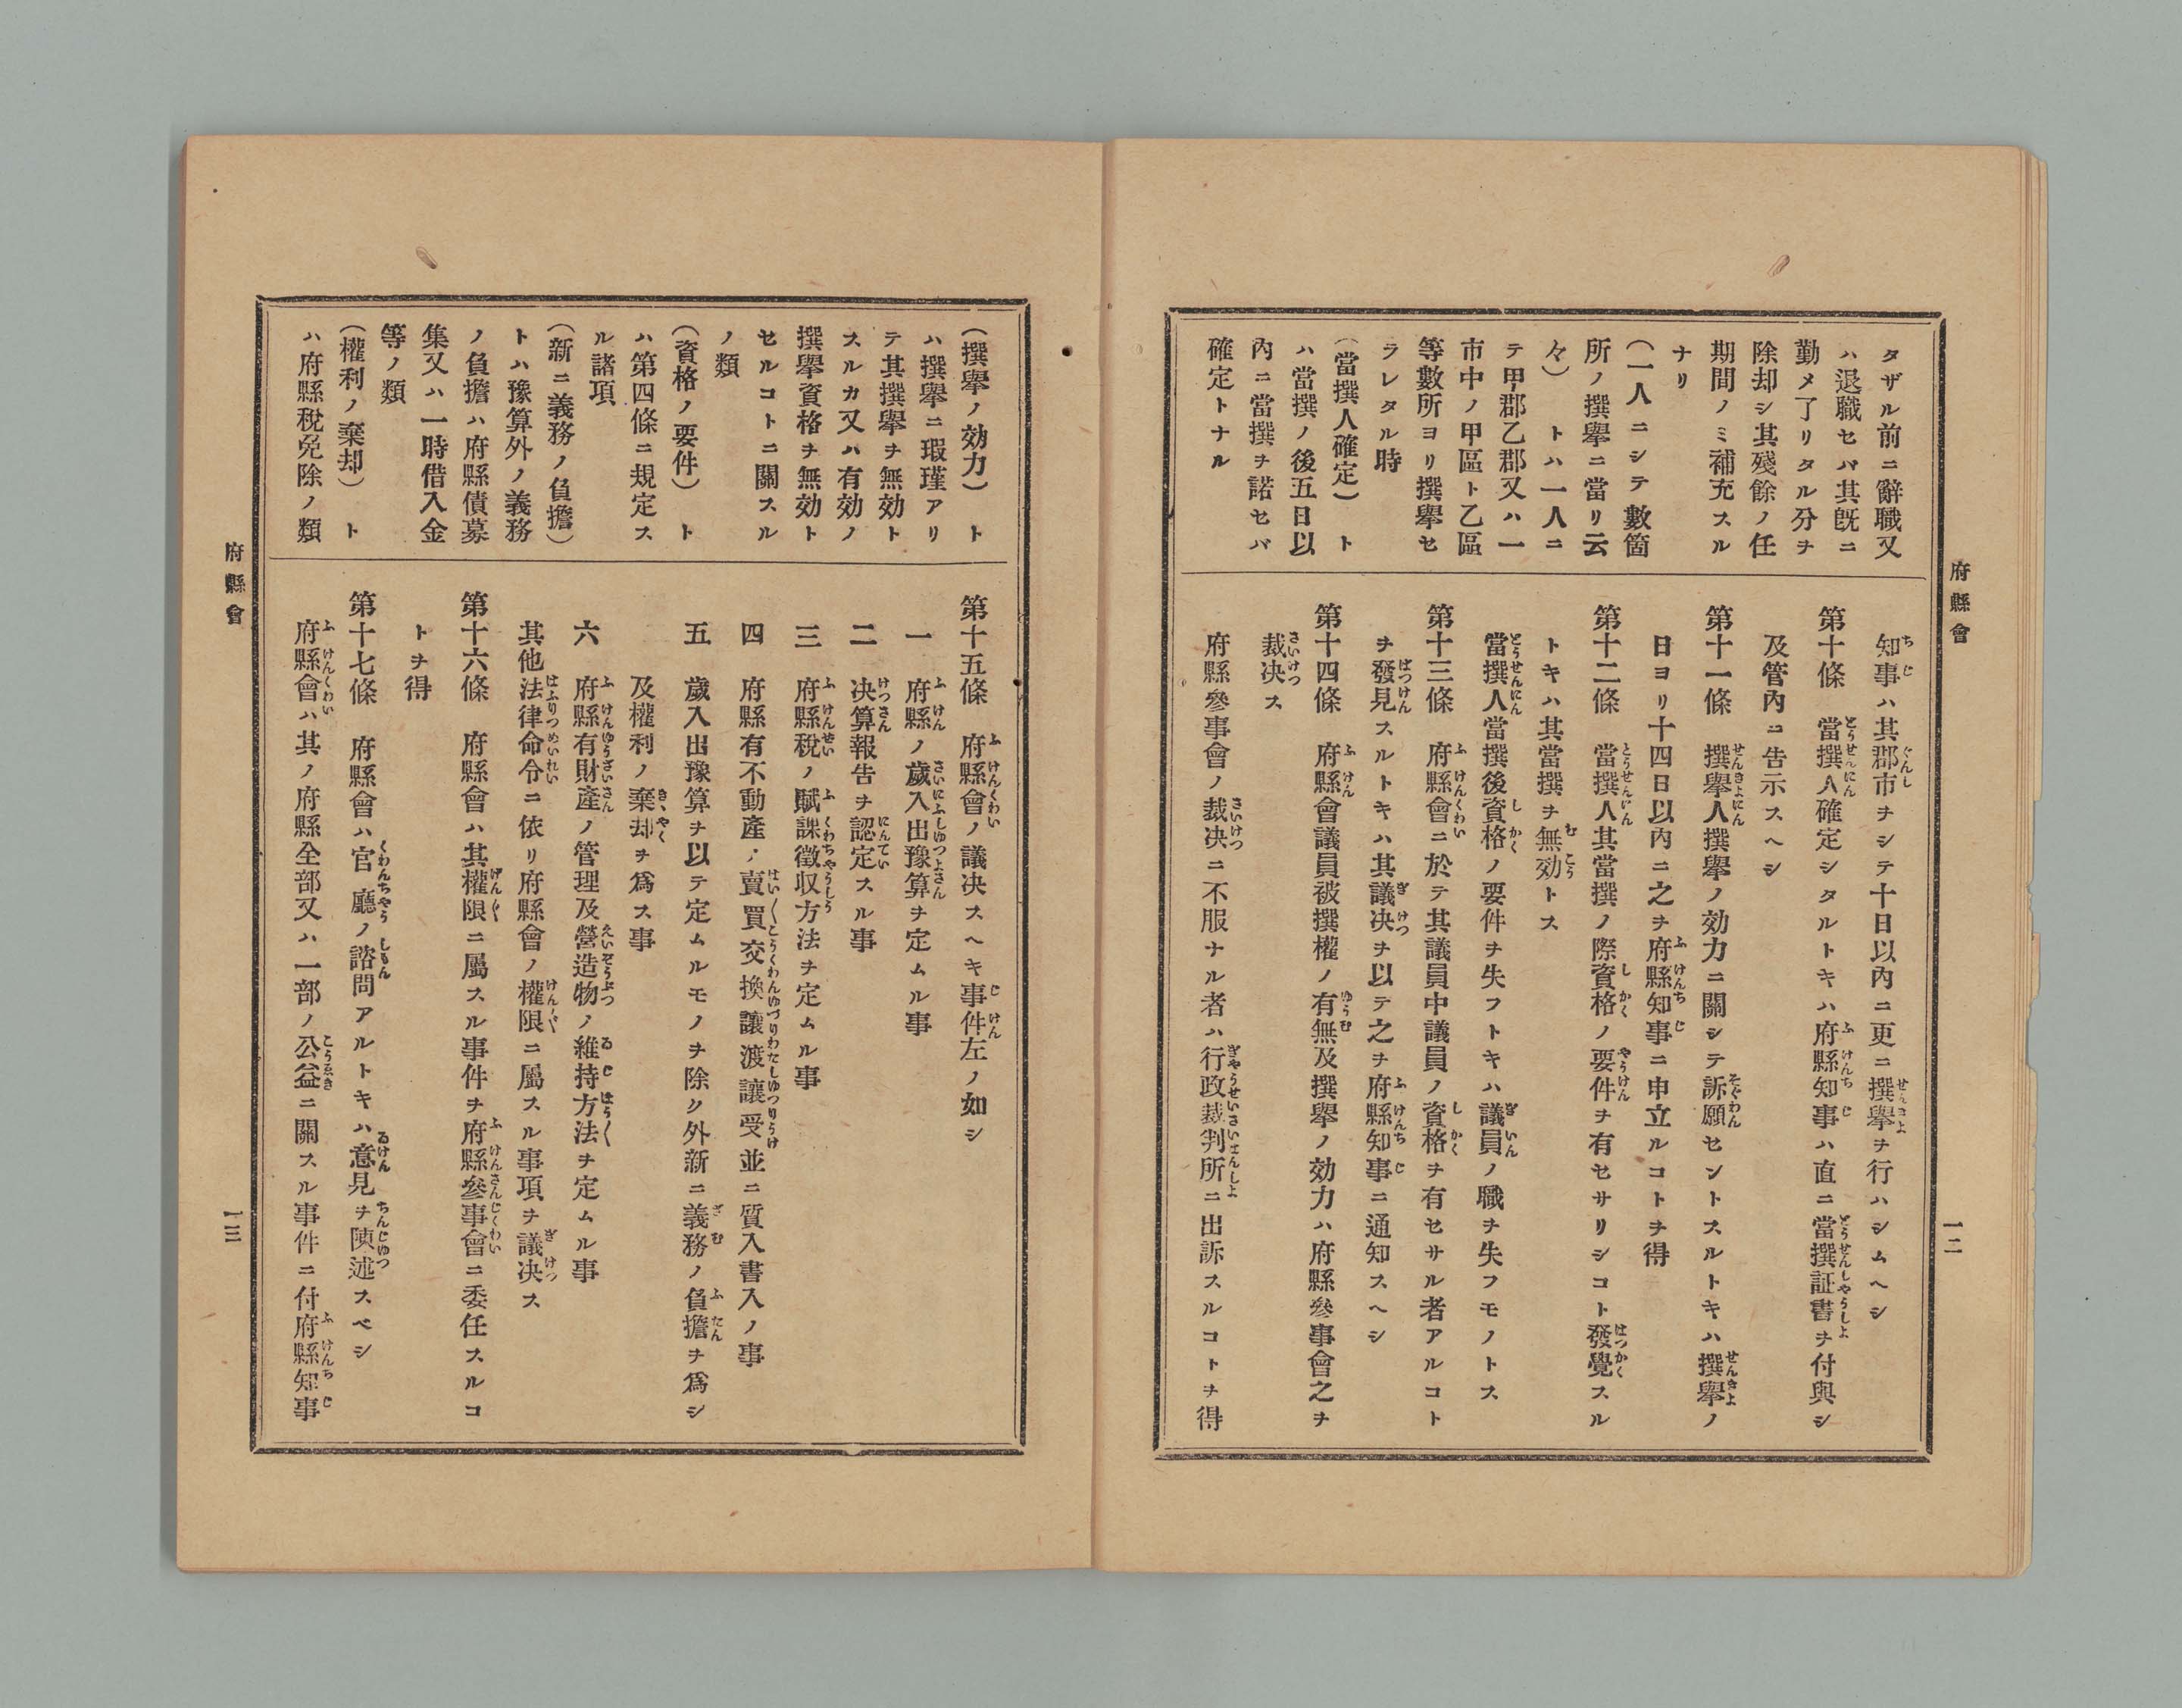 府縣會
一二
タザル前ニ辭職又
ハ退職セバ其既ニ
勤メ了リタル分ヲ
除却シ其殘餘ノ任
期間ノミ補充スル
ナリ
(一人ニシテ數箇
所ノ撰擧ニ當リ云
々)トハ一人ニ
テ甲郡乙郡又ハ一
市中ノ甲區ト乙區
等數所ヨリ撰擧セ
ラレタル時
(當撰人確定)ト
ハ當撰ノ後五日以
內ニ當撰ヲ諾セバ
確定トナル
知事ハ其郡市ヲシテ十日以內ニ更ニ撰擧ヲ行ハシムヘシ
第十條 當撰人確定シタルトキハ府縣知事ハ直ニ當撰証書ヲ付與シ
及管內ニ告示スヘシ
第十一條 撰擧人撰擧ノ効力ニ關シテ訴願セントスルトキハ撰擧ノ
日ヨリ十四日以內ニ之ヲ府縣知事ニ申立ルコトヲ得
第十二條 當撰人其當撰ノ際資格ノ要件ヲ有セサリシコト發覺スル
トキハ其當撰ヲ無効トス
當撰人當撰後資格ノ要件ヲ失フトキハ議員ノ職ヲ失フモノトス
第十三條 府縣會ニ於テ其議員中議員ノ資格ヲ有セサル者アルコト
ヲ發見スルトキハ其議决ヲ以テ之ヲ府縣知事ニ通知スヘシ
第十四條 府縣會議員被撰權ノ有無及撰擧ノ効力ハ府縣參事會之ヲ
裁决ス
府縣參事會ノ裁决ニ不服ナル者ハ行政裁判所ニ出訴スルコトヲ得
(撰擧ノ効力)ト
ハ撰擧ニ瑕瑾アリ
テ其撰擧ヲ無効ト
スルカ又ハ有効ノ
撰擧資格ヲ無効ト
セルコトニ關スル
ノ類
(資格ノ要件)ト
ハ第四條ニ規定ス
ル諸項
(新ニ義務ノ負擔)
トハ豫算外ノ義務
ノ負擔ハ府縣債募
集又ハ一時借入金
等ノ類
(權利ノ棄却)ト
ハ府縣稅免除ノ類
第十五條 府縣會ノ議决スヘキ事件左ノ如シ
一 府縣ノ歲入出豫算ヲ定ムル事
二 决算報告ヲ認定スル事
三 府縣稅ノ賦課徵収方法ヲ定ムル事
四 府縣有不動產ノ賣買交換讓渡讓受並ニ質入書入ノ事
五 歲入出豫算ヲ以テ定ムルモノヲ除ク外新ニ義務ノ負擔ヲ爲シ
及權利ノ棄却ヲ爲ス事
六 府縣有財產ノ管理及營造物ノ維持方法ヲ定ムル事
其他法律命令ニ依リ府縣會ノ權限ニ屬スル事項ヲ議决ス
第十六條 府縣會ハ其權限ニ屬スル事件ヲ府縣參事會ニ委任スルコ
トヲ得
第十七條 府縣會ハ官廳ノ諮問アルトキハ意見ヲ陳述スベシ
府縣會ハ其ノ府縣全部又ハ一部ノ公益ニ關スル事件ニ付府縣知事
府縣會
一三